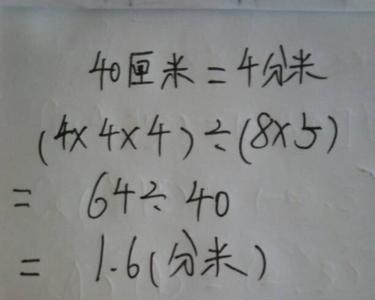 40厘米=4分米
(4×4×4)÷(8×5)
= 64÷40
= 1.6(分米)